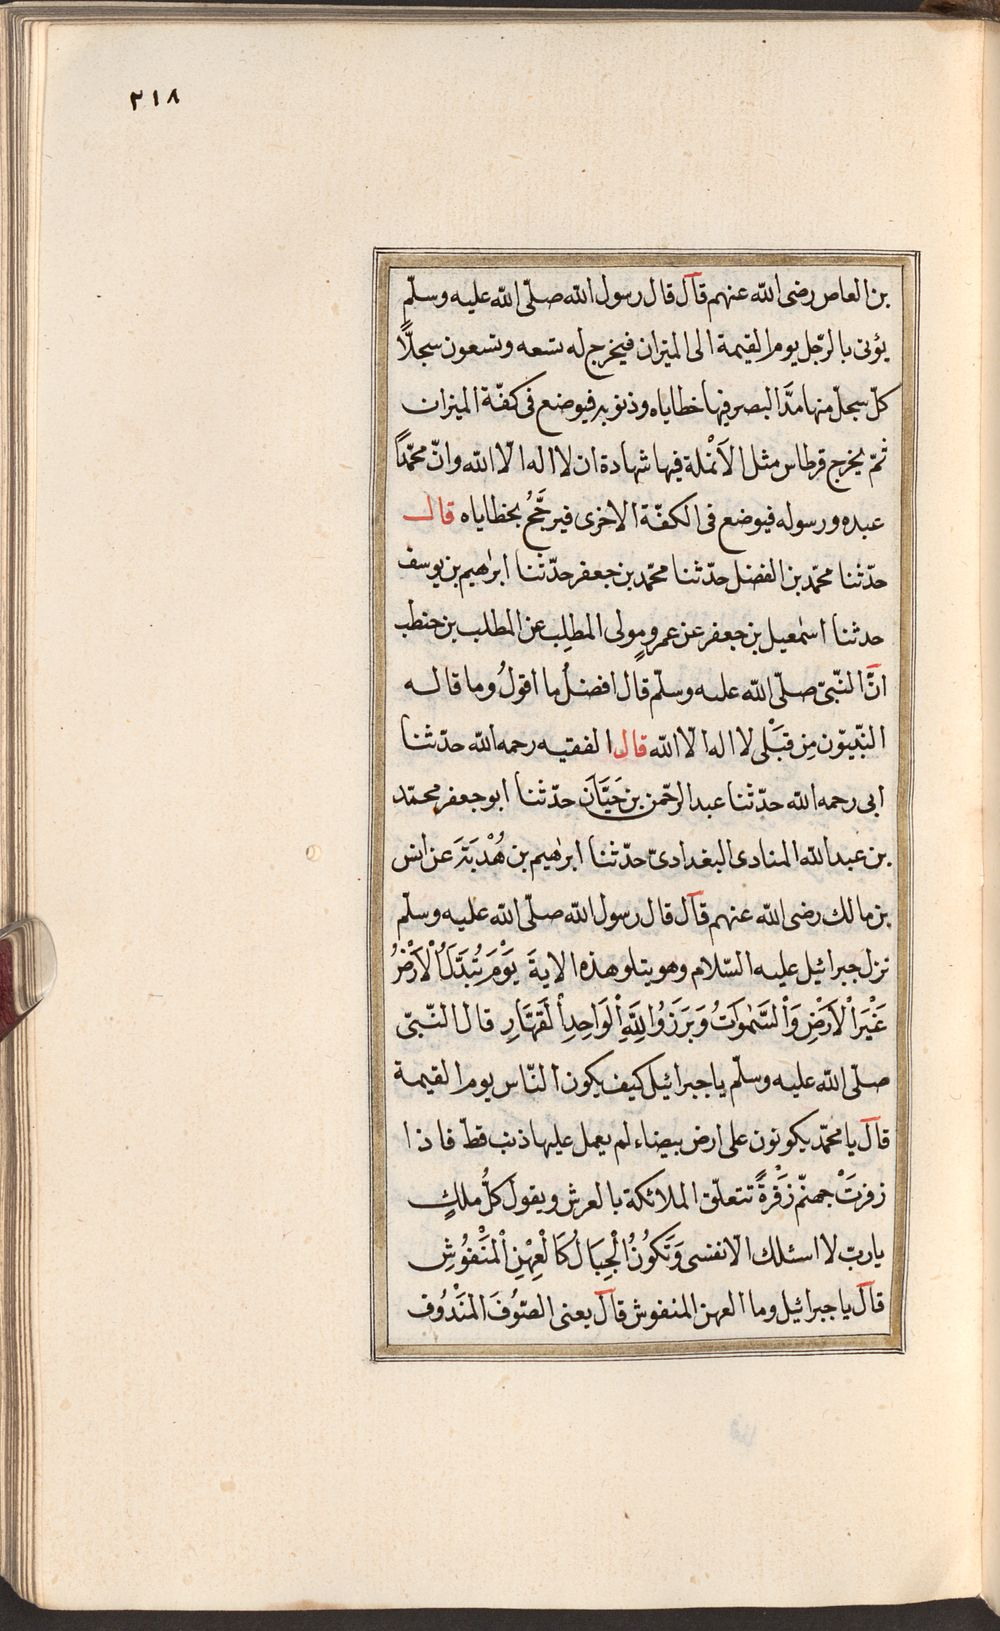 ٢١٨
بن العاص رضى الله عنهم قال قال رسول الله صلّى الله عليه وسلّم
يؤتى بالرّجل يوم القيمة الى الميزان فيخرج له تسعه وتسعون سجلًّا
كلّ سجلّ منها مدَّ البصر فيها خطاياه وذنوبه فيوضع فى كفّة الميزان
ثمّ يخرج قرطاس مثل الاَنْملة فيها شهادة ان لا اله الّا الله وانّ محمّدًا
عبده ورسوله فيوضع فى الكفّة الاخرى فيرجَّحُ بخطاياه قال
حدّثنا محمّد بن الفضل حدّثنا محمّد بن جعفر حدّثنا ابرٰهيم بن يوسف
حدثنا اسمٰعيل بن جعفر عن عمرو مولى المطلِب عن المطلب بن حنطب
انَّ النّبىّ صلّى الله عليه وسلّم قال افضلُ ما اقولُ وما قاله
النّبيّون مِن قبَلْى لا اله الّا الله قال الفقيه رحمه الله حدّثنا
ابى رحمه الله حدّثنا عبد الرحّمن بن حَيَّان حدّثنا ابو جعفر محمّد
بن عبد الله المنادى البغدادىّ حدّثنا ابرٰهيم بن هُدْبَةَ عن انس
بن مالك رضى الله عنهم قال قال رسول الله صلّى الله عليه وسلّم
نزل جبرائيل عليه السّلام وهو يتلو هذه الاية يَوْمَ تُبَدَّلُ الْاَرْضُ
غَيْرَ الْاَرْضِ وَالْسَّمٰوَاتُ وَبَرَزُوا لِلّهِ الْوَاحِدِ الْقَهَّارِ قال النّبىّ
صلّى الله عليه وسلّم يا جبرائيل كيف يكون النّاس يوم القيمة
قال يا محمّد يكونون على ارض بيضاء لم يعمل عليها ذنب قطّ فاذا
زفرتْ جهنّم زَفْرةً تتعلّق الملائكة بالعرش ويقول كلُّ ملكٍ
يا ربّ لا اسئلك الّا نفسى وَتَكُونُ الْجِبَالُ كَالْعِهْنِ الْمَنْفُوشِ
قال يا جبرائيل وما العهن المنفوش قال يعنى الصّوُفَ المَنْدُوف